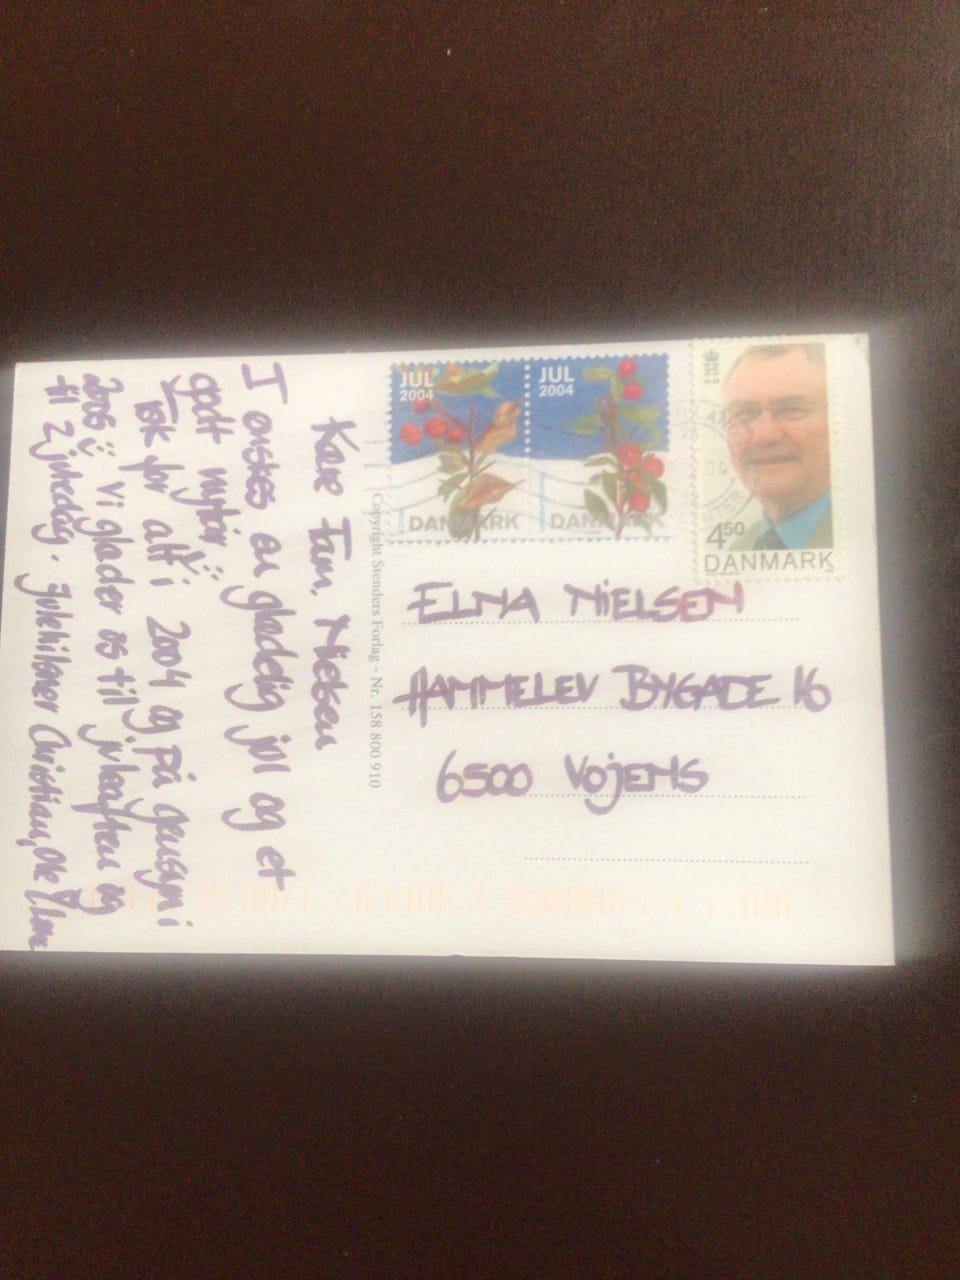 Kære Fam. Nielsen
I ønskes en glædelig jul og et
godt nytår
Tak for alt i 2004 og på gensyn i
2005 vi glæder os til juleaften og
til 2 juledag. Julehilsner Christian, Ole & Lone
Copyright Stenders Forlag - Nr. 158 800 910
JUL
2004
DANMARK
JUL
2004
DANMARK
4 50
DANMARK
ELNA NIELSEN
HAMMELEV BYGADE 16
6500 VOJENS